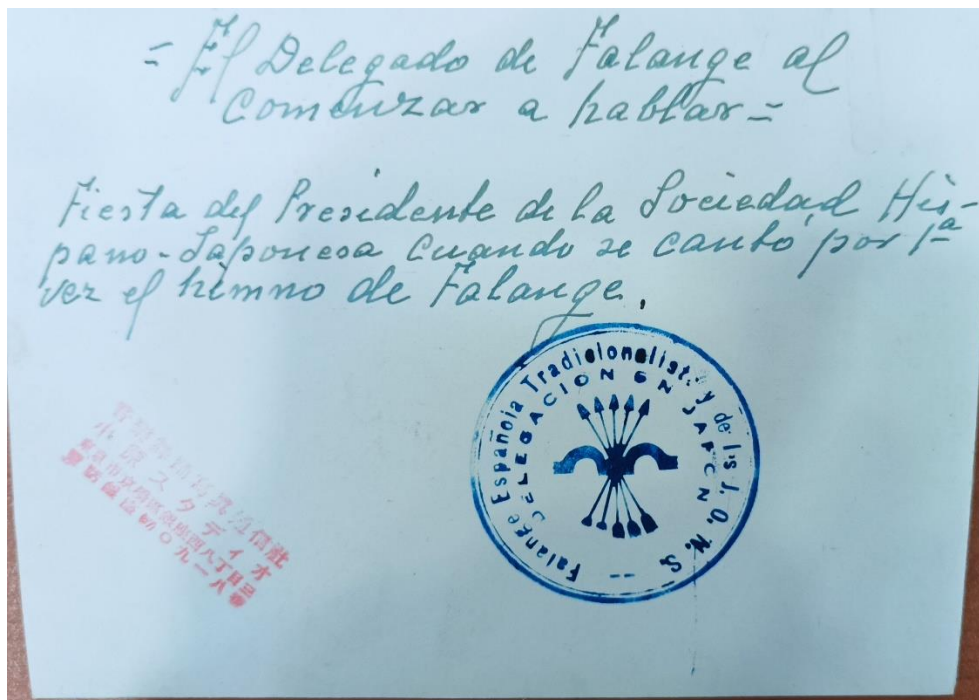 = El Delegado de Falange al
Comenzar a hablar =
Fiesta del Presidente de la Sociedad His-
pano-Japonesa cuando se cantó por 1ª
vez el himno de Falange.
Falange Española Tradicionalist. y de l.s J. O. N. S.
DELEGACION EN JAPON
小 スタディオ
東京市京橋區銀座西八丁目
電話銀座 〇九一八番